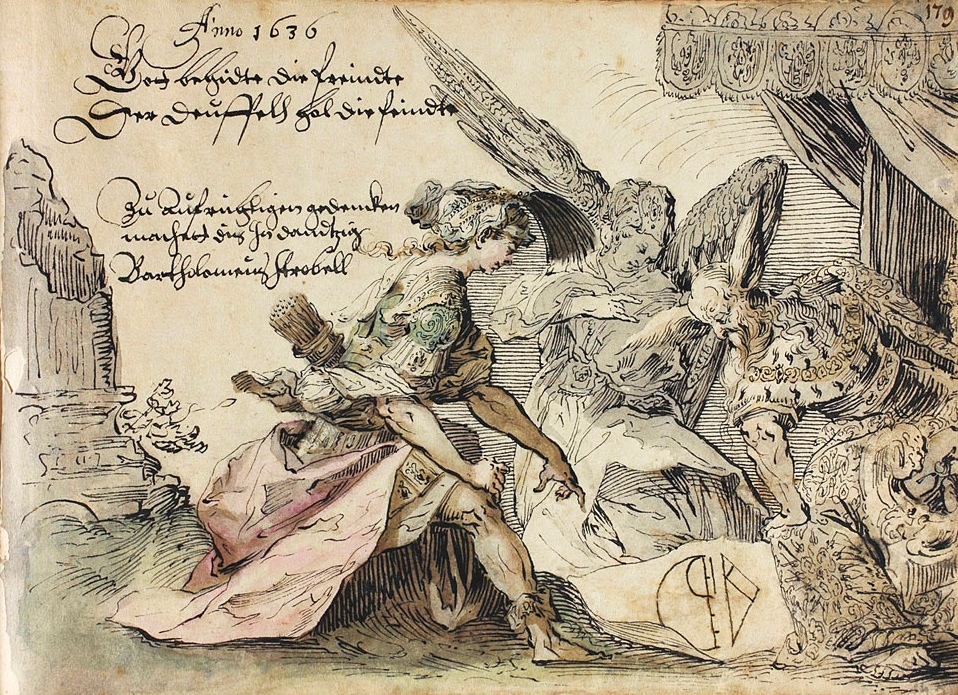 179
Anno 1636
Gott behidte die freindte
Der Deuffell hol die feindte
Zu Aufrichtigen gedencken
machett dis In dantzig
Bartholomeus Strobell